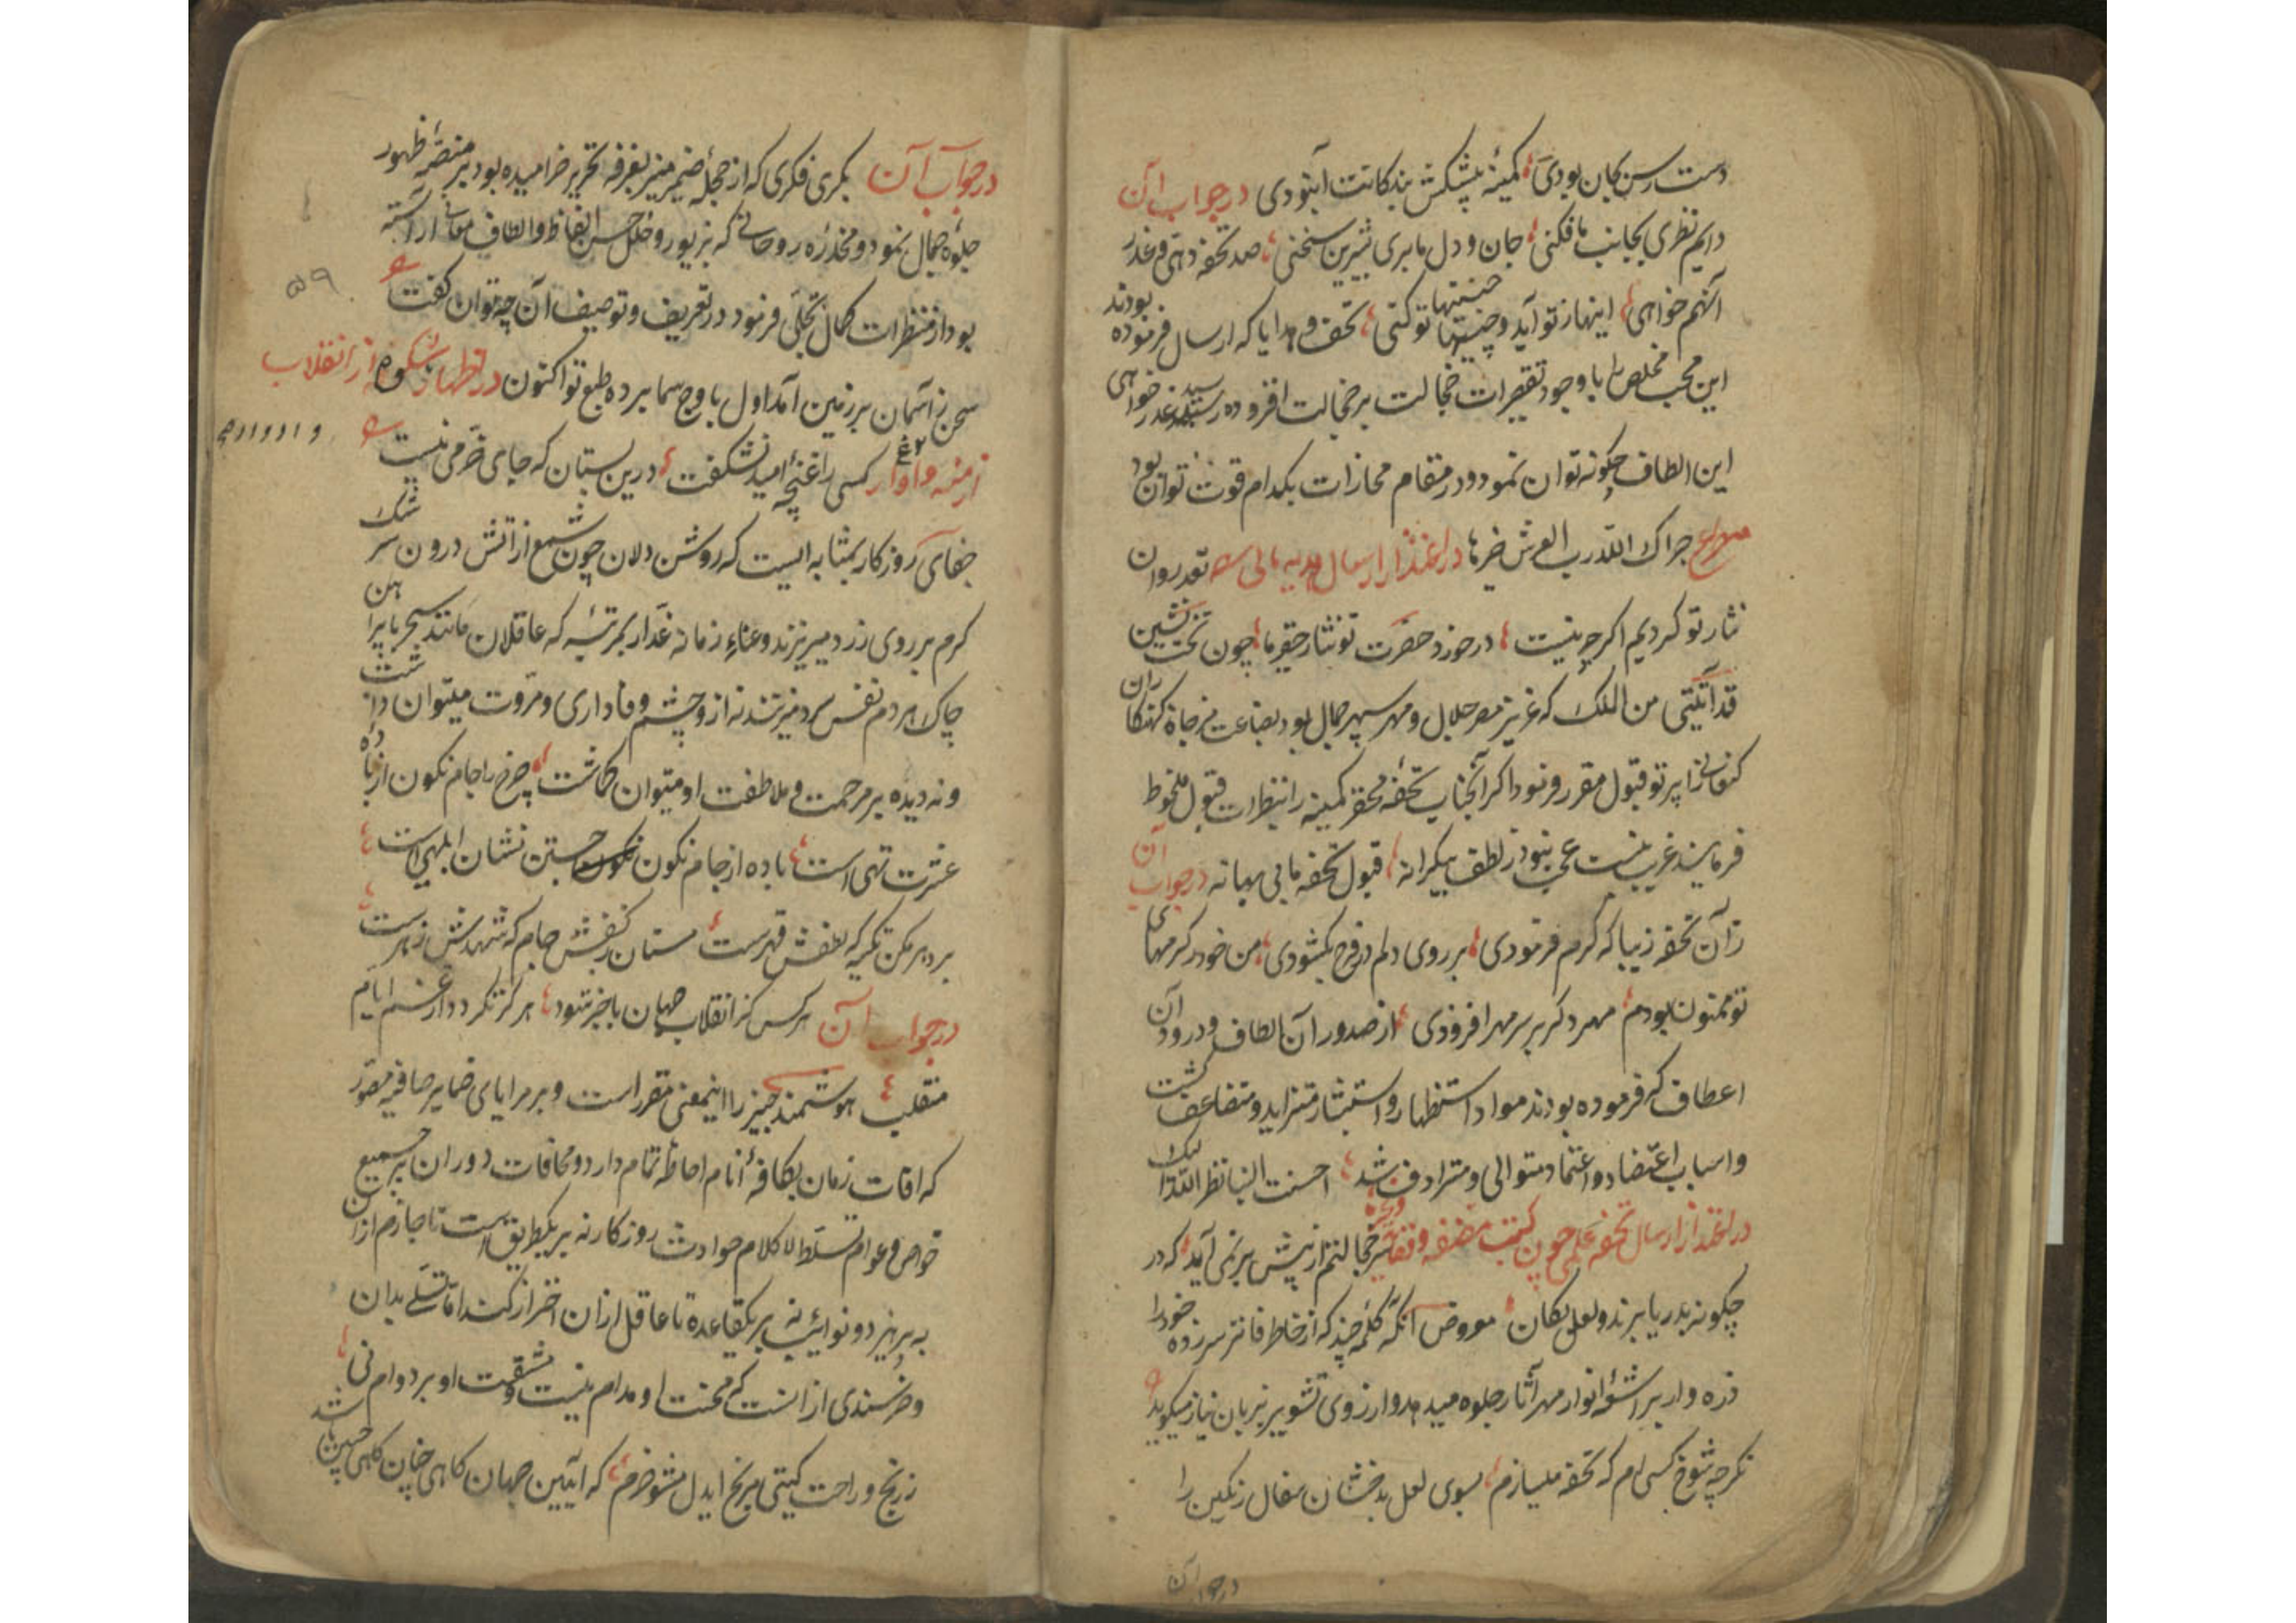 دست رس بکان بودی کمینه پیشکش بندکانت آبنودی در جواب آن
دایم نظری بجانب ما فکنی جان و دل ما بری شیرین سخنی صد تحفه دهی و عذر
آنهم خواهی اینها ز تو آید و چنینها تو کنی تحف و هدایا که ارسال فرموده بودند
این محب مخلص را با وجود تقصیرات خجالت بر خجالت افزوده رسید عذر خواهی
این الطاف چکونه توان نمود و در مقام مجازات بکدام قوت توان بود
مصراع جزاک الله رب العرش خیرها در اعتذار ارسال هدیه مالی نقد روان
نثار تو کردیم اکرچه نیست در خورد حضرت تو نثار حقیر ما چون تخت نشین
قد آتیتنی من الملک که عزیز مصر جلال و مهر سپهر جمال بود بضاعت مزجاة کهنکاران
کنعانرا پرتو قبول مقرر فرمود اکر آنجناب تحفه محقر کمینه را بنظرات قبول ملحوظ
فرمایند غریب نیست عجب نبود ز لطف بیکرانه قبول تحفه ما بی بهانه در جواب آن
زان تحفه زیبا که کرم فرمودی بر روی دلم در فرح بکشودی من خود ز کرمهای
تو ممنون بودم مهر دکر بر سر مهر افزودی از صدور آن الطاف و ورود آن
اعطاف که فرموده بودند مواد استظهار و استبشار متزاید و متضاعف کشت
و اسباب اعتضاد و اعتماد متوالی و مترادف شد احسنت الینا نظر الله الیک
در اعتذار ارسال تحفه علمی چون کتب مصنفه و غیره سر خجالتم از پیش بر نمی آید که در
چکونه بدریا برند و لعل بکان معروض آنکه کلمه چند که از خاطر فاتر سر زده خود را
ذره وار بر اشعه انوار مهر آثار جلوه میدهد و از روی تشویر بزبان نیاز میکوید
نکر چه شوخ کسی ام که تحفه میسازم بسوی لعل بدخشان سفال رنکین را
در جواب آن
در جواب آن بکری فکری که از حجله ضمیر منیر بغرفه تحریر خرامیده بود بر منصه ظهور
جلوه جمال نمود و مخدره روحانی که بزیور و حلل حسن الفاظ و الطاف معانی آراسته
بود از منظرات کمال تجلی فرمود در تعریف و توصیف آن چه توان کفت
۵۹
سخن ز آسمان بر زمین آمد اول باوج سما برده طبع تو اکنون در اظهار شکوه از انقلاب
ازمنه و ادوار کسی را غنچه امید نشکفت درین بستان که جای خرمی نیست
جفای روزکار بمثابه ایست که روشن دلان چون شمع از آتش درون سرشک
کرم بر روی زرد میریزند و عناء زمانه غدار بمرتبه که عاقلان مانند سحر با پیراهن
چاک هر دم نفس سرد میزنند نه ازو چشم وفاداری و مروت میتوان داشت
و نه دیده بر مرحمت و ملاطفت او میتوان کماشت چرخ را جام نکون از باده
عشرت تهی است باده از جام نکون جستن نشان ابلهی است
بر دهر مکن تکیه که لطفش قهرست مستان ز کفش جام که شهدش زهرست
در جواب آن هر کس کز انقلاب جهان با خبر شود هرکز نکردد از غم ایام
منقلب هوشمند خبیر را اینمعنی مقرر است و بر مرایای ضمایر صافیه مصور
که آفات زمان بکافه انام احاطه تمام دارد و مخافات دوران بر جمیع
خواص و عوام تسلط لا کلام حوادث روزکار نه بر یکطریق است تا جازم از آن
بپرهیزد و نوائب نه بر یکقاعده تا عاقل از آن احتراز کند اما تسلی بدان
و خرسندی از آنست که محنت او مدام نیست و مشقت او بر دوام نی
ز رنج و راحت کیتی مرنج ایدل مشو خرم که آیین جهان کاهی چنان کاهی چنین باشد